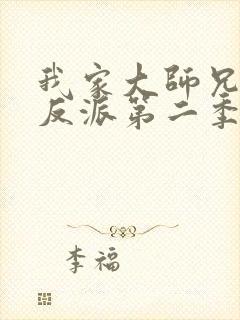 我家大師兄
反派第二季
李福